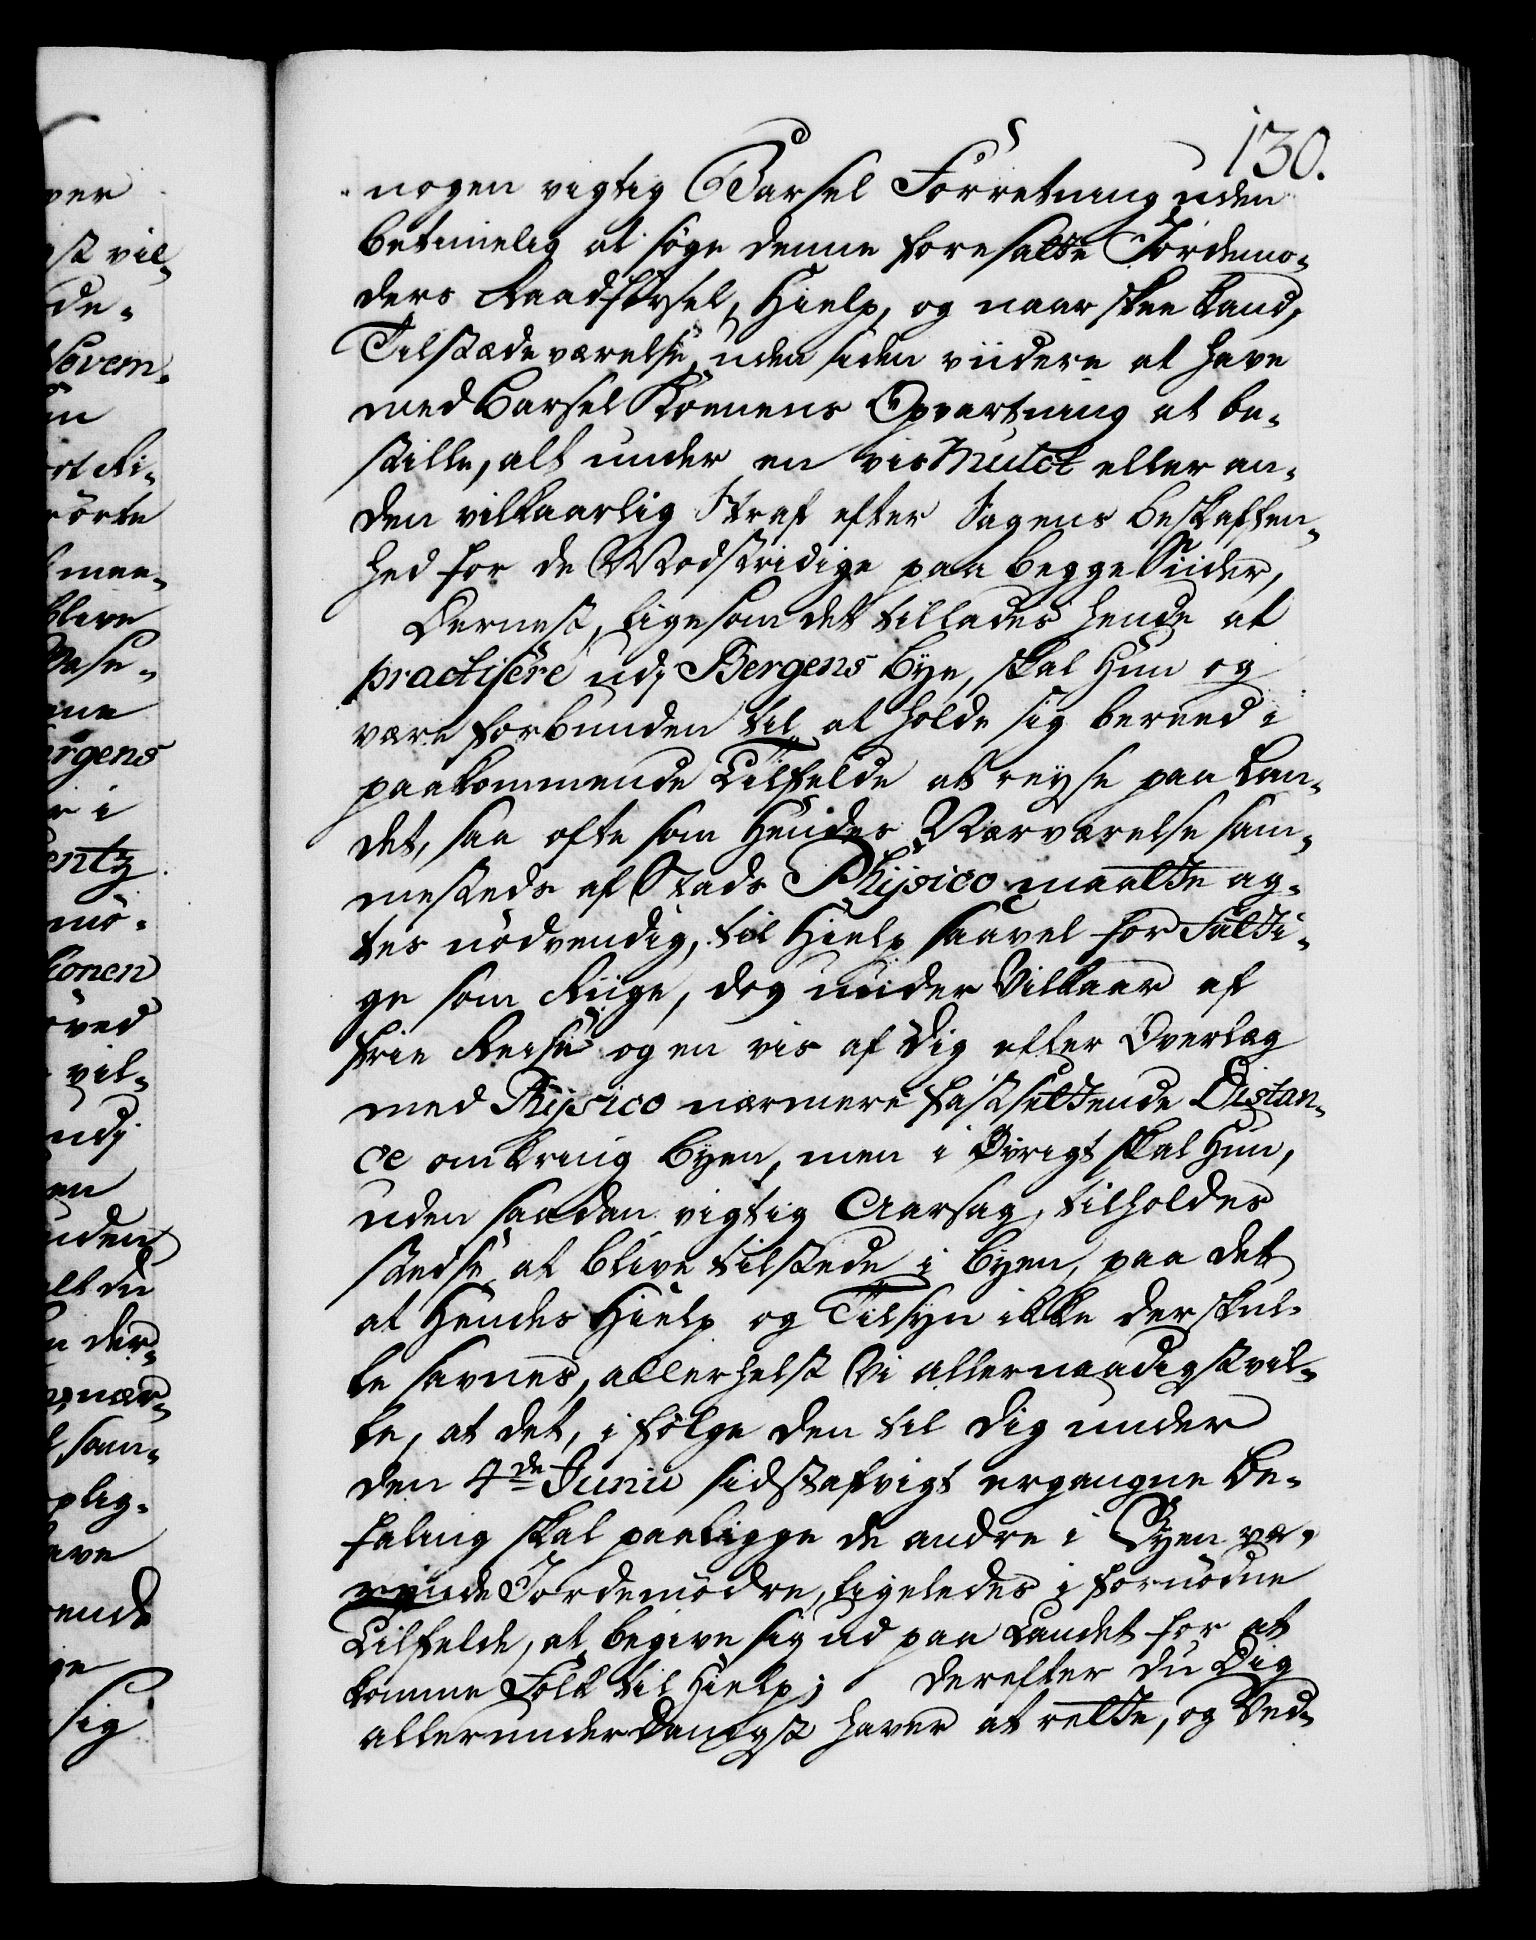 ver
st vil-
de-
Novem-
en
ort Ri-
rörte
mee-
blive
Base-
ene
ergens
r i
entz
mö-
Konen
oved
vil-
udj
en
uden
alt du
n der-
nær-
sam-
plig-
ave
ende
ge
sig
130.
nogen vigtig Barsel Forretning uden
betimelig at søge denne foresatte Jordemo-
ders Raadførsel, Hielp, og naar skee kand,
Tilstædeværelse, uden siden viidere at have
med Barsel Konens Opvartning at be-
stille, alt under en vis Mulct eller an-
den vilkaarlig Straf efter Sagens beskaffen-
hed for de Modstridige paa begge Siider,
Dernest, ligesom det tillades hende at
practisere udj Bergens bye, skal Hun og
være forbunden til at holde sig bereed i
paakommende Tilfelde at reyse paa Lan-
det, saa ofte som Hendes Nærværelse sam-
mesteds af Stads Physico maatte ag-
tes nødvendig, til Hielp saavel for Fatti-
ge som Riige, dog under Vilkaar af
frie Reise og en vis af dig efter Overlæg
med Physico nærmere fastsettende Distan-
ce omkring byen, men i Øvrigt skal Hun,
uden saadan vigtig Aarsag, tilholdes
stedse at blive tilstede i byen, paa det
at Hendes Hielp og Tilsyn ikke der skul-
le savnes, allerhelst Vi allernaadigst vil-
le, at det, i følge den til dig under
den 4de Junii sidstafvigt ergangne Be-
faling skal paaligge de andre i Byen væ-
rende Jordemødre, ligeledes i fornødne
Tilfelde, at begive sig ud paa Landet for at
komme Folk til Hielp; derefter du Dig
allerunderdanigst haver at rette, og Ved-